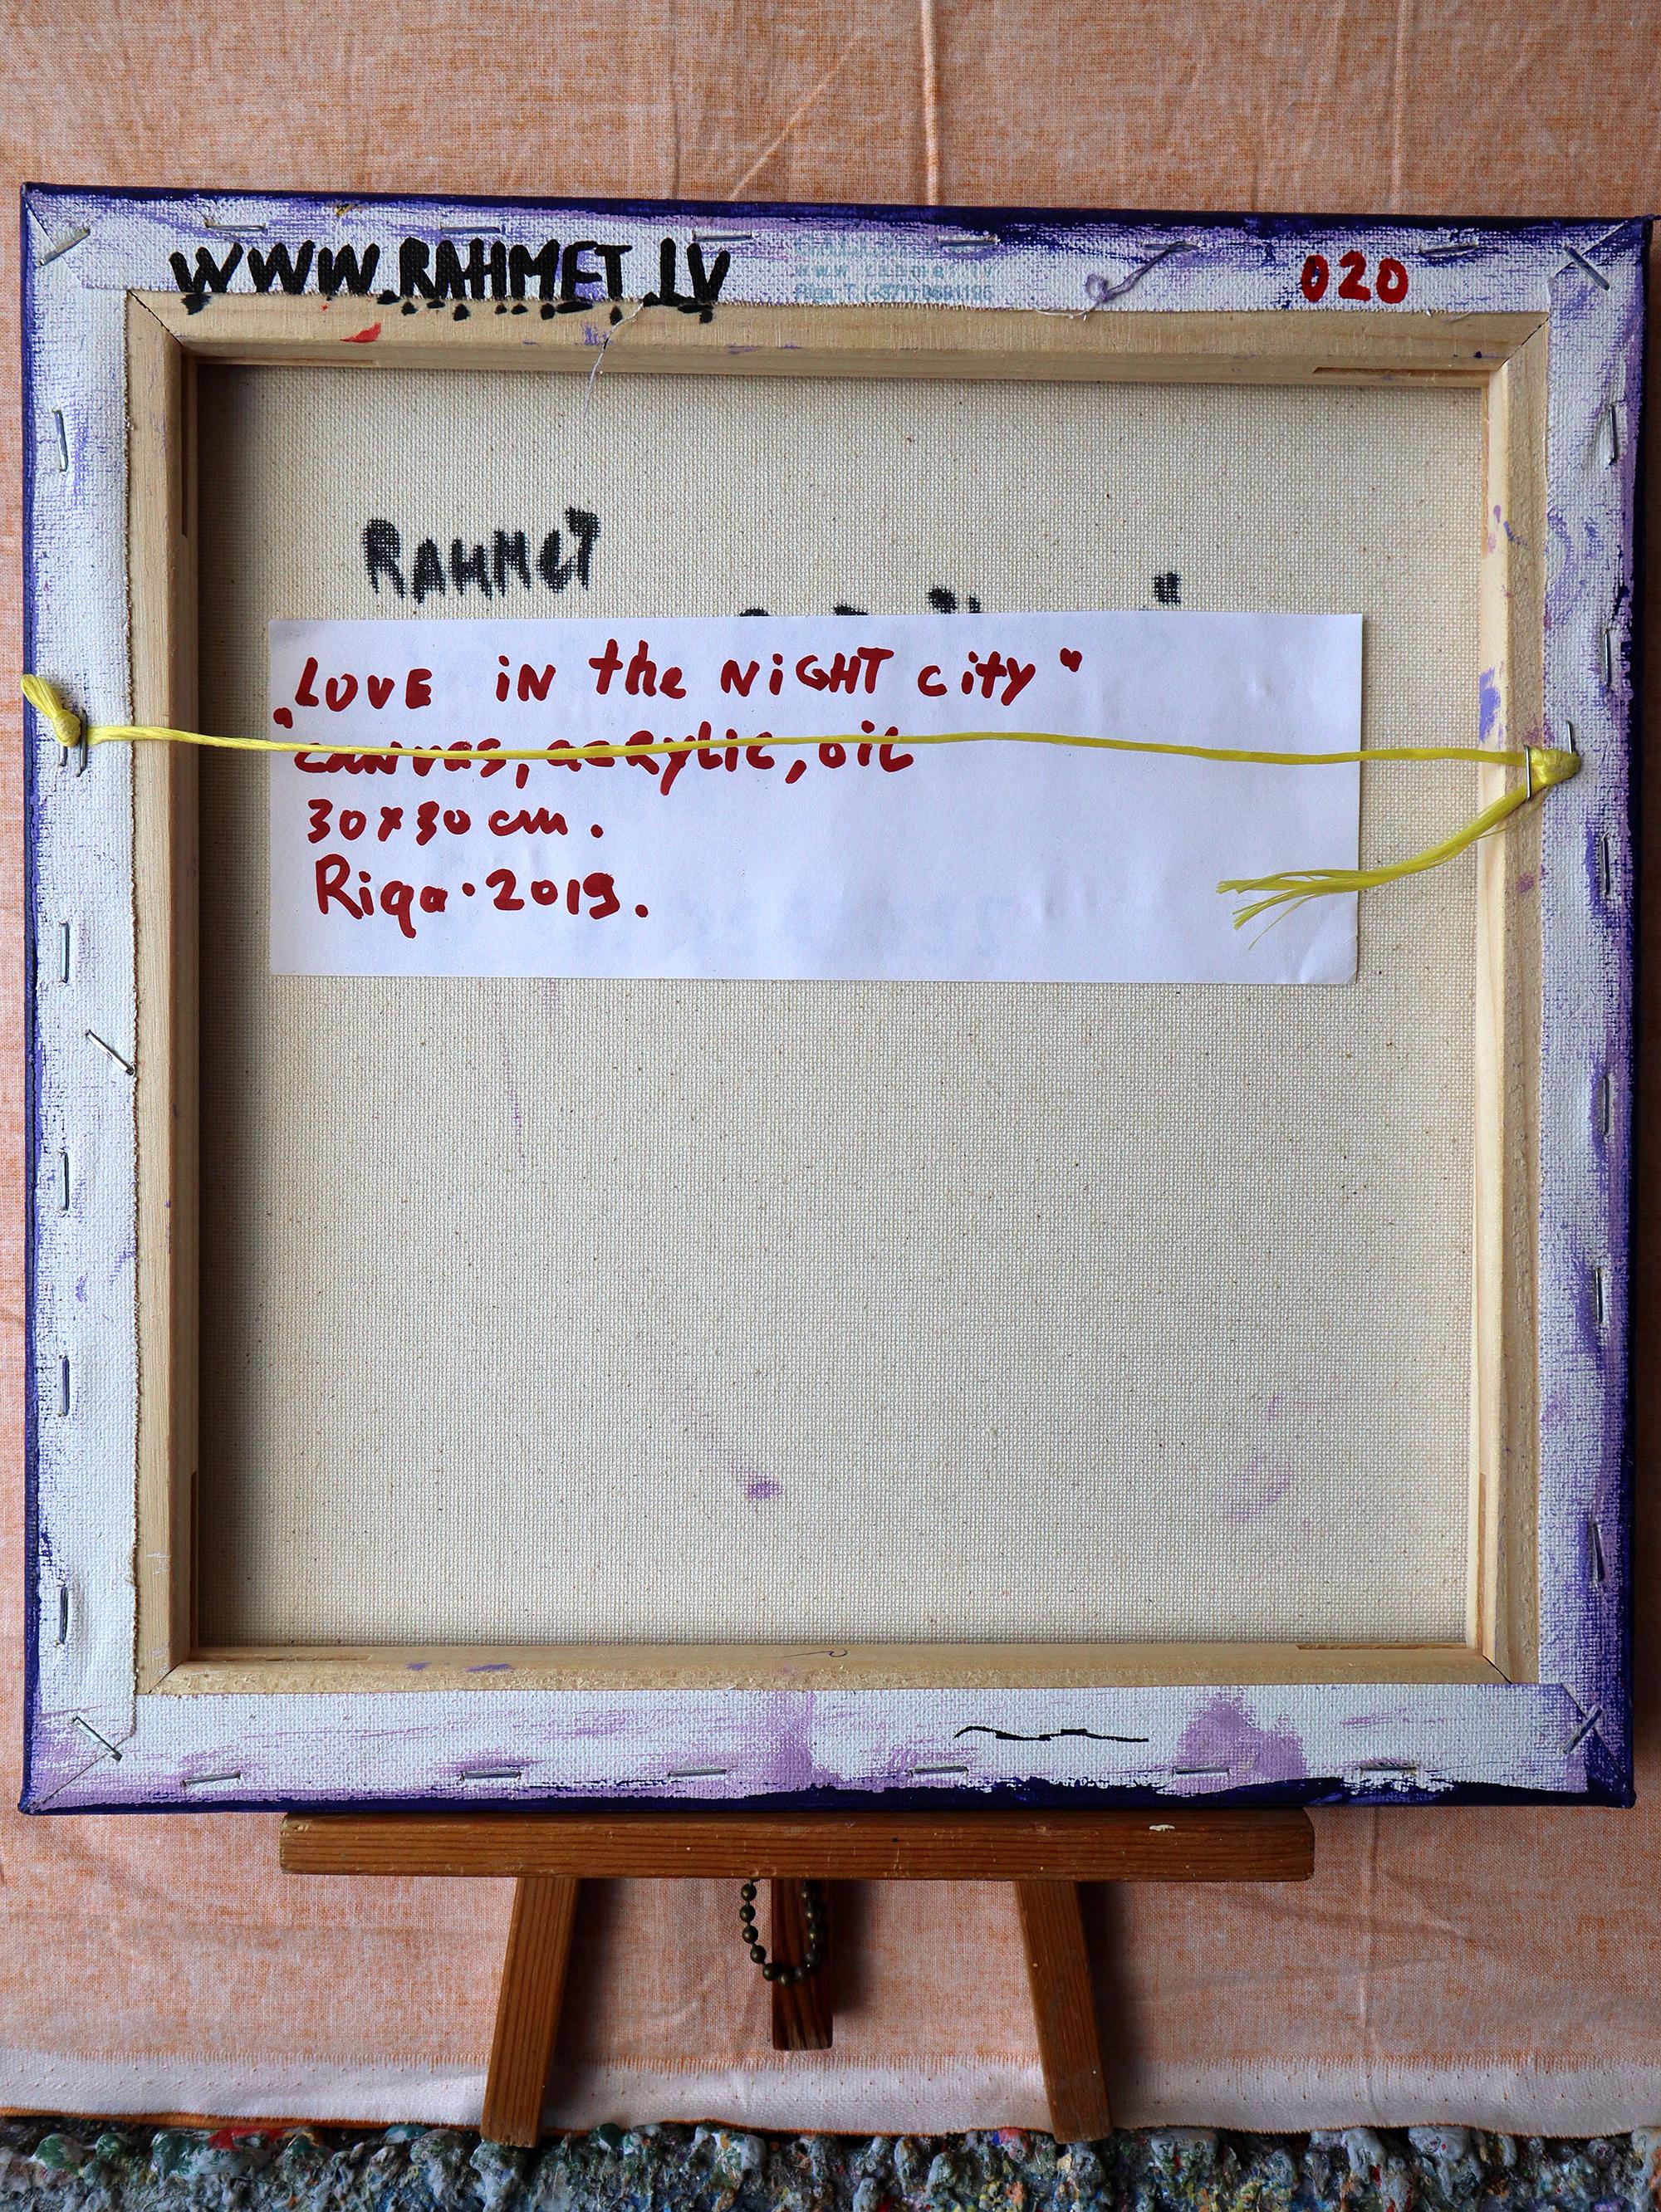 WWW.RAHMET.LV
www.rahmet.lv
020
RAHMET
„LOVE iN the NiGHT city"
canvas, acrylic, oil
30x30 cm.
Riga·2019.